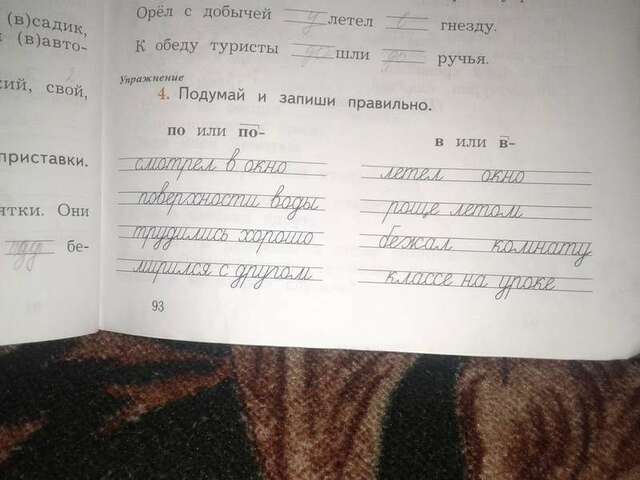 (в)садик,
(в)авто-
кий, свой,
приставки.
ятки. Они
бе-
Орёл с добычей у летел к гнезду.
К обеду туристы до шли до ручья.
Упражнение
4. Подумай и запиши правильно.
по или по-
смотрел в окно
поверхности воды
трудились хорошо
мирился с другом
93
в или в-
летел окно
роще летом
бежал комнату
классе на уроке